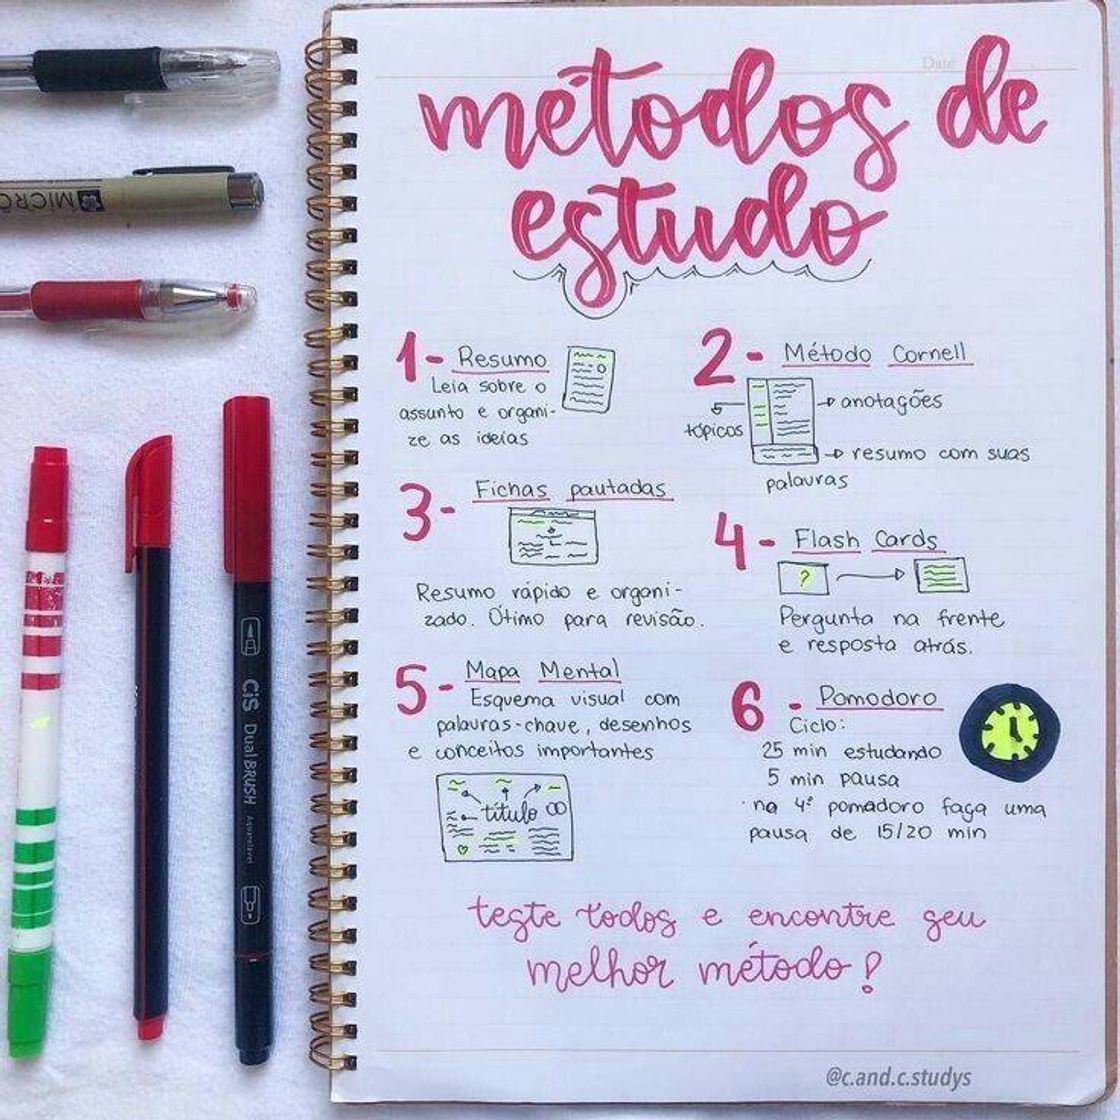 Date
métodos de
estudo
1- Resumo
Leia sobre o
assunto e organi-
ze as ideias
2- Método Cornell
→ anotações
tópicos
→ resumo com suas
palavras
3- Fichas pautadas
Resumo rápido e organi-
zado. Ótimo para revisão.
4- Flash Cards
?
Pergunta na frente
e resposta atrás.
5- Mapa Mental
Esquema visual com
palavras-chave, desenhos
e conceitos importantes
título
6- Pomodoro
Ciclo:
25 min estudando
5 min pausa
na 4º pomadoro faça uma
pausa de 15/20 min
teste todos e encontre seu
melhor método!
@c.and.c.studys
MICRO
CiS Dual BRUSH Aquarelável